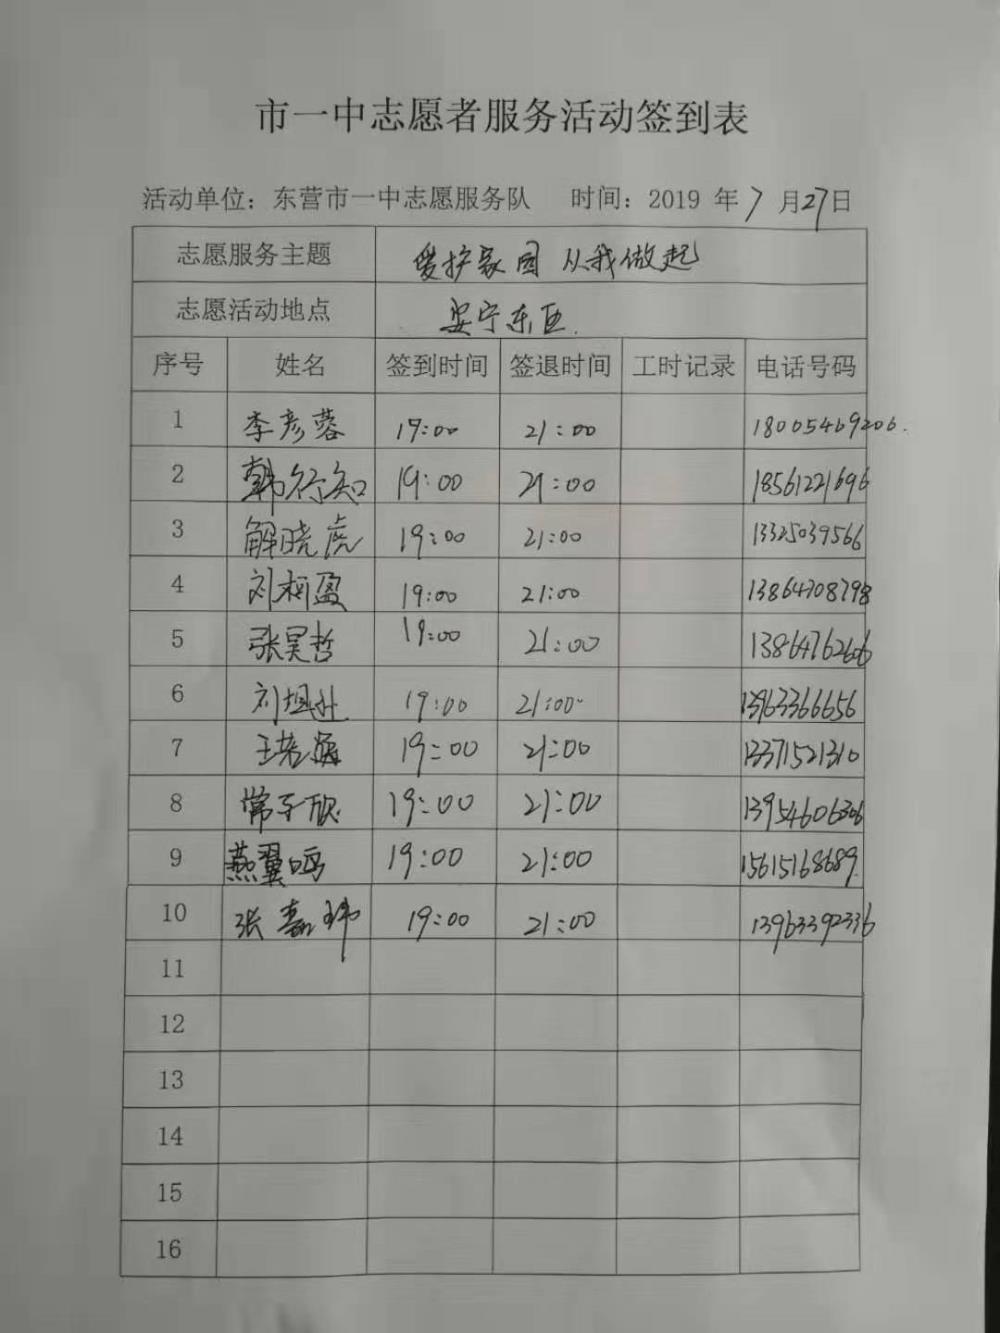 市一中志愿者服务活动签到表
活动单位：东营市一中志愿服务队 时间：2019 年 7 月27日
志愿服务主题 爱护家园 从我做起
志愿活动地点 安宁东区.
序号 姓名 签到时间 签退时间 工时记录 电话号码
1 李彦蓉 19:00 21:00 18005469206.
2 韩行知 19:00 21:00 18561221696
3 解晓虎 19:00 21:00 13325039566
4 刘柯盈 19:00 21:00 13864708798
5 张昊哲 19:00 21:00 13864762606
6 19:00 21:00 13963366656
7 19:00 21:00 13371521310
8 常子欣 19:00 21:00 13954606306
9 燕翼鸣 19:00 21:00 15615168689.
10 张嘉玮 19:00 21:00 13963392336
11
12
13
14
15
16